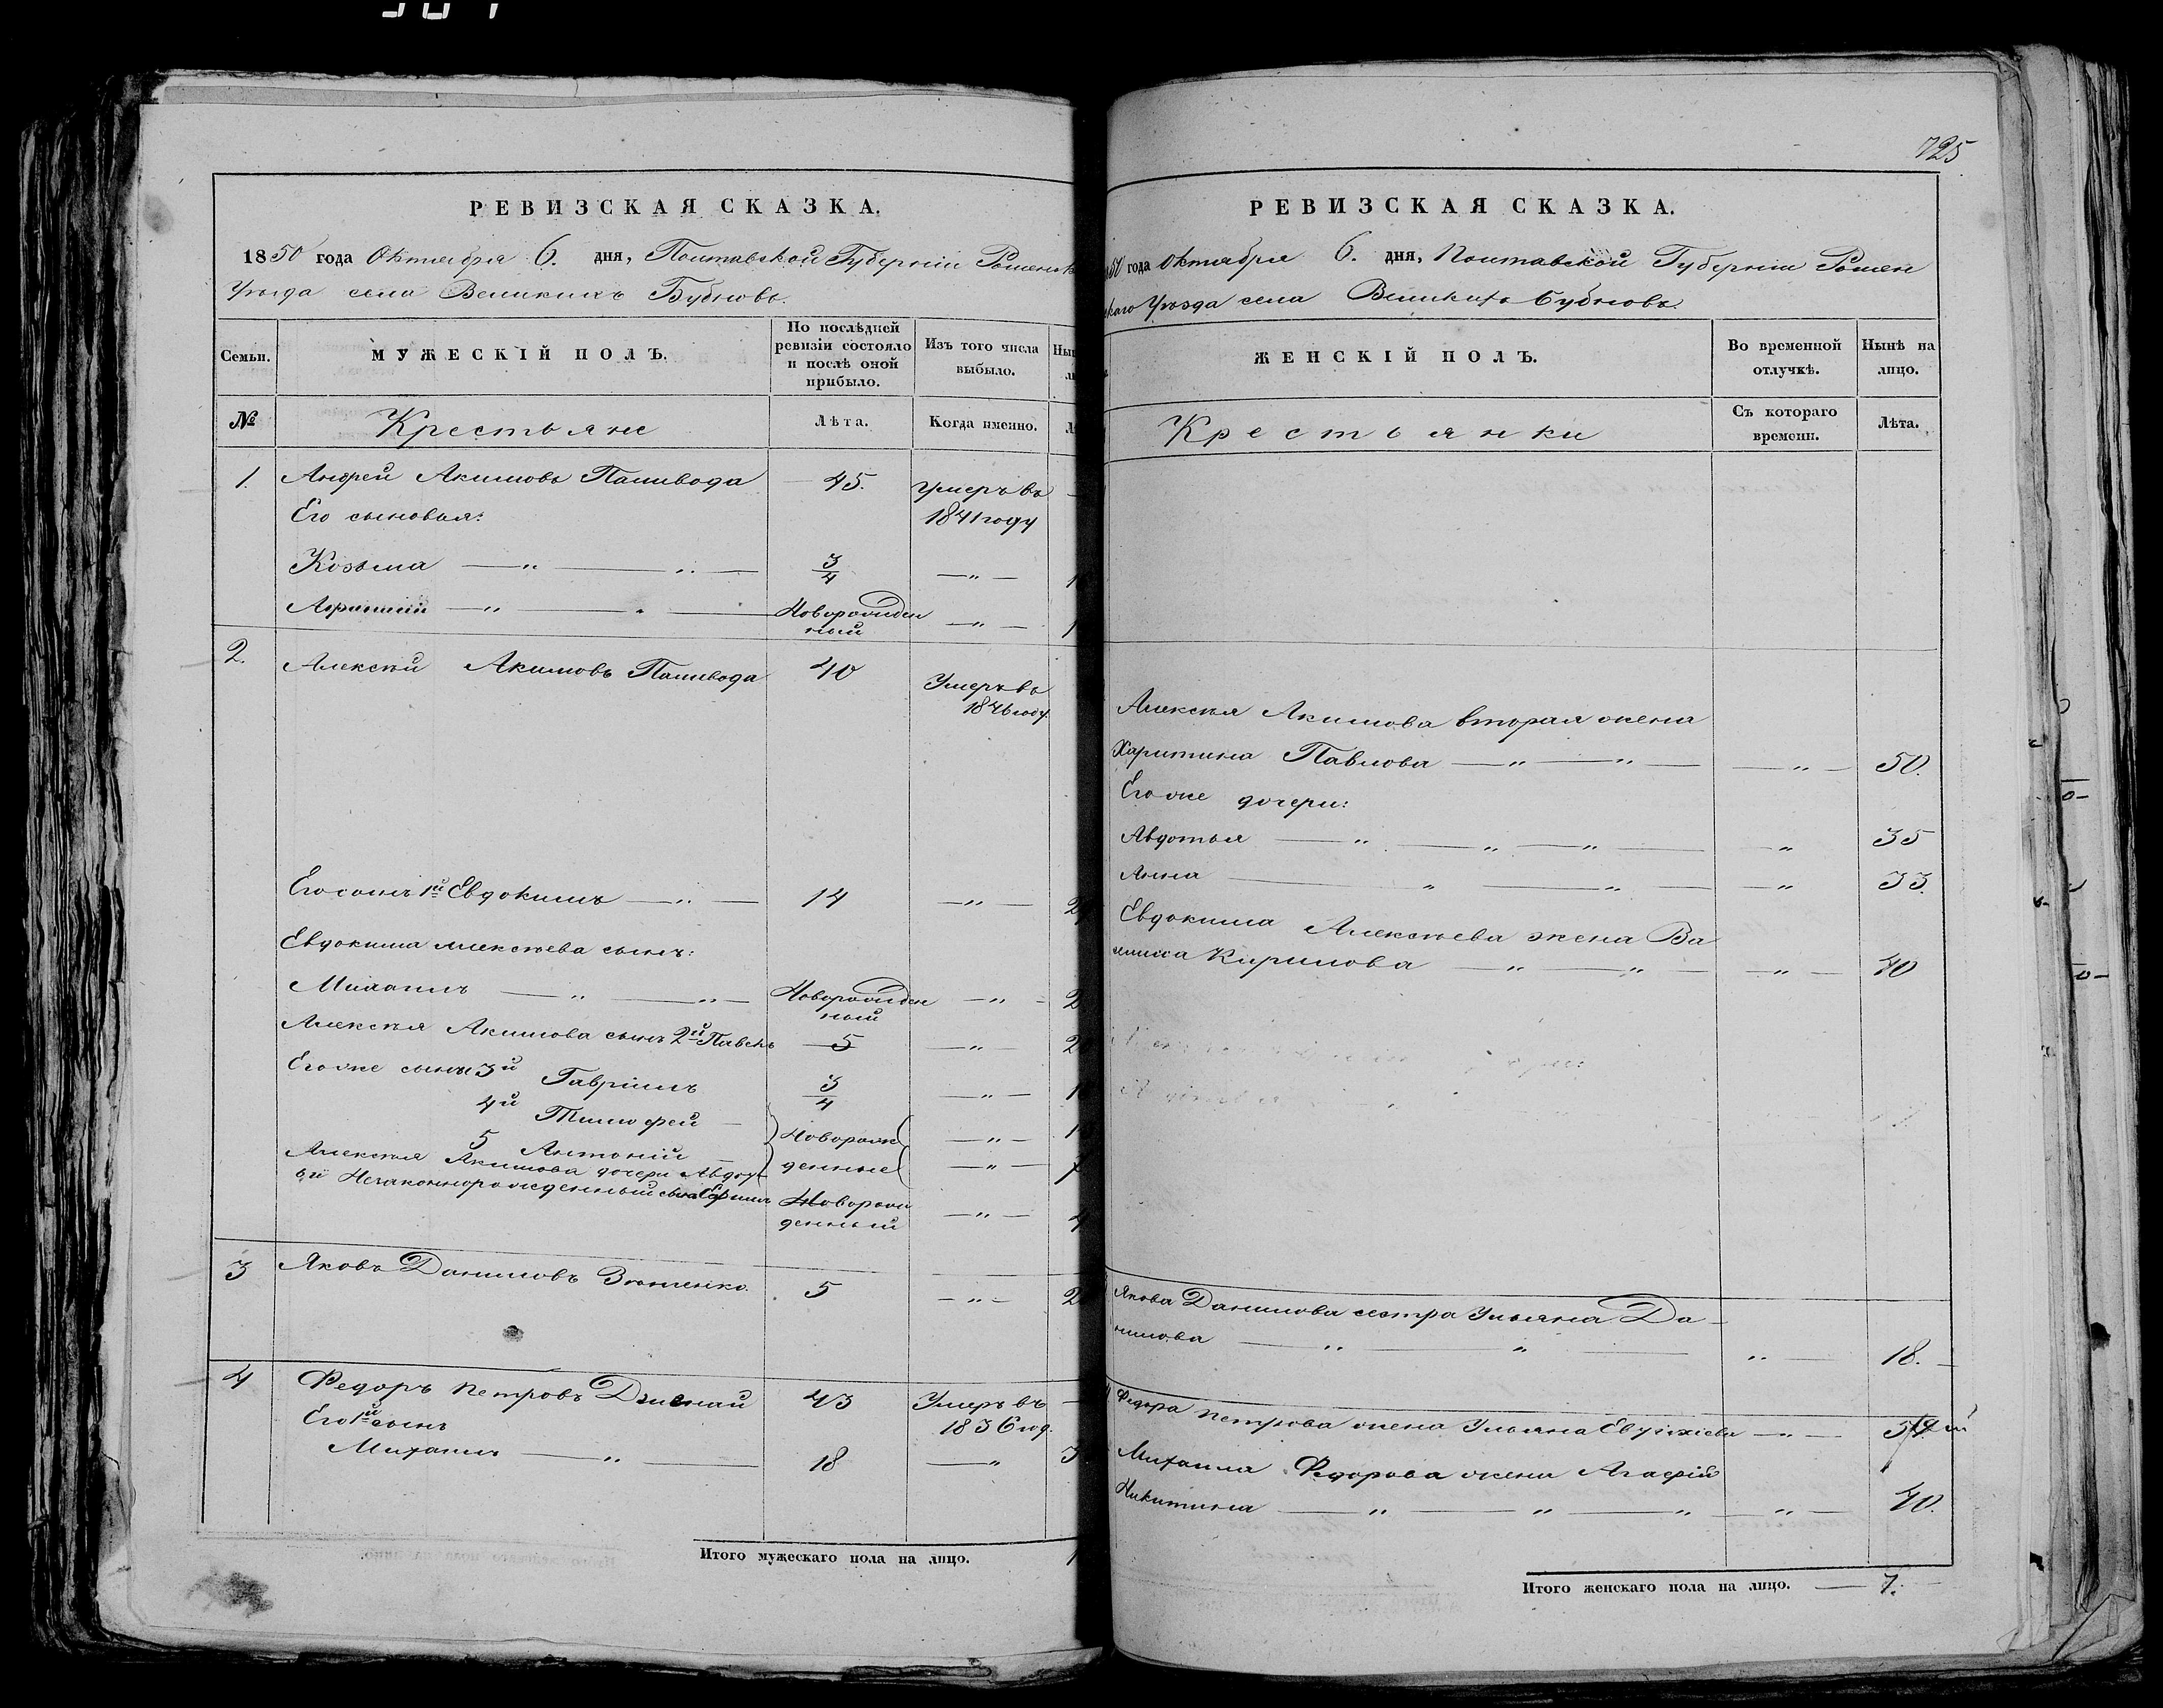 725
РЕВИЗСКАЯ СКАЗКА.
1850 года Октября 6. дня, Полтавской Губерніи Роменск
Уѣзда села Великихъ Бубновъ.
Семьи.
МУЖЕСКІЙ ПОЛЪ.
По послѣдней
ревизіи состояло
и послѣ оной
прибыло.
Изъ того числа
выбыло.
№
Крестьяне
Лѣта.
Когда именно.
1. Андрей Акимовъ Паливода 45. Умеръ въ
Его сыновья: 1841 году
Козьма — „ — „ — 3/4 — „ —
Новорожден
ный — „ —
2. Алексѣй Акимовъ Паливода 40 Умеръ въ
1846 году
Его сынъ 1й Евдокимъ — „ — 14 — „ —
Евдокима Алексѣева сынъ:
Михаилъ — „ — „ — Новорожден — „ —
ный
Алексѣя Акимова сынъ 2й Павелъ 5 — „ —
Его же сынъ 3й Гавріилъ 3/4 — „ —
4й Тимофей — Новорож — „ —
5 Антоній — денные — „ —
Алексѣя Акимова дочери Авдоть
ѣи Незаконнорожденный сынъ Ефимъ Новорож
денный — „ —
3 Яковъ Даниловъ 5 — „ —
4 Федоръ Петровъ 43 Умеръ въ
Его 1й сынъ 1836 год.
Михаилъ — „ — 18 — „
Итого мужескаго пола на лицо.
РЕВИЗСКАЯ СКАЗКА.
50 года Октября 6. дня, Полтавской Губерніи Ромен
скаго Уѣзда села Великихъ Бубновъ.
ЖЕНСКІЙ ПОЛЪ.
Во временной
отлучкѣ.
Нынѣ на
лицо.
Крестьянки
Съ котораго
времени.
Лѣта.
Алексѣя Акимова вторая жена
Харитина Павлова — „ — „ — — „ — 50.
Его же дочери:
Авдотья — „ — „ — „ — „ 35
Анна — „ — „ — — „ — 33.
Евдокима Алексѣева жена Ва
Кирилова — „ — „ — — „ — 40
Якова Данилова сестра Ульяна Да-
нилова — „ — „ — „ — 18. —
Федора Петрова жена Ульяна — „ —
Михаила Федорова жена Агафія
Никитина — „ — „ — „ — „ — 40.
Итого женскаго пола на лицо. — 7.